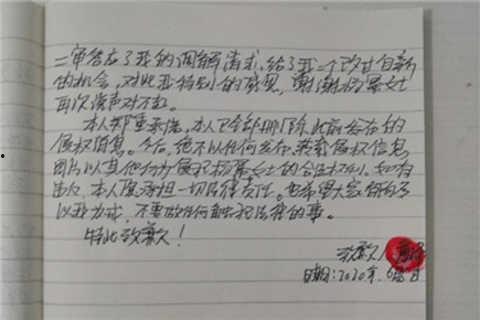 二审答应了我的调解请求,给了我一个改过自新
的机会,对此我特别的感恩,谢谢杨幂女士
再次说声对不起。
本人郑重承诺,本人已全部删除此前发布的
侵权消息。今后,绝不以任何发布、转载侵权信息
图片以其他行为侵犯杨幂女士的合法权利。如有
出次,本人愿承担一切法律责任。也希望大家都
以我为戒,不要做任何触犯法律的事。
特此致歉!
致歉人:
日期:2020年6月 日